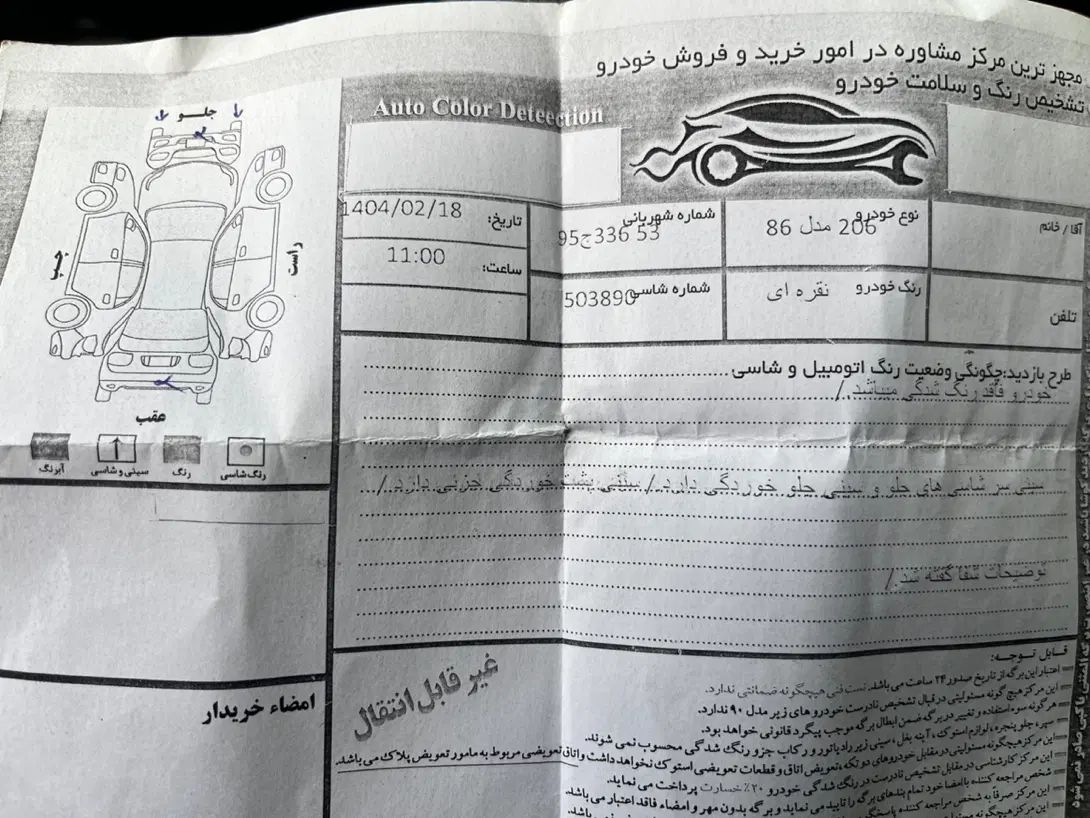 مجهز ترین مرکز مشاوره در امور خرید و فروش خودرو
تشخیص رنگ و سلامت خودرو
Auto Color Deteection
آقا / خانم
نوع خودرو
206 مدل 86
شماره شهربانی
53 336ج95
تاریخ:
1404/02/18
تلفن
رنگ خودرو
نقره ای
شماره شاسی
503890
ساعت:
11:00
جلو
راست
چپ
عقب
رنگ شاسی
رنگ
سینی و شاسی
آبرنگ
طرح بازدید:چگونگی وضعیت رنگ اتومبیل و شاسی
خودرو فاقد رنگ شدگی میباشد./
سینی سر شاسی های جلو و سینی جلو خوردگی دارد./ سینی پشت خوردگی جزئی دارد./
توضیحات شفا گفته شد./
امضاء خریدار
غیر قابل انتقال
قابل توجه:
اعتبار این برگه از تاریخ صدور ۲۴ ساعت می باشد. تست فنی هیچگونه ضمانتی ندارد.
این مرکز هیچ گونه مسئولیتی در قبال تشخیص نادرست خودرو های زیر مدل ۹۰ ندارد.
هرگونه سوء استفاده و تغییر در برگه ضمن ابطال برگه موجب پیگرد قانونی خواهد بود.
سپر، جلو پنجره، لوازم استوک، آینه بغل، سینی زیر رادیاتور و رکاب جزو رنگ شدگی محسوب نمی شوند.
این مرکز هیچگونه مسئولیتی در مقابل خودروهای دو تکه، تعویض اتاق و قطعات تعویضی استوک نخواهد داشت و اتاق تعویضی مربوط به مامور تعویض پلاک می باشد.
این مرکز کارشناسی در مقابل تشخیص نادرست در رنگ شدگی خودرو ۲۰٪ خسارت پرداخت می نماید.
شخص مراجعه کننده با امضاء خود تمام بندهای برگه را تایید می نماید و برگه بدون مهر و امضاء فاقد اعتبار می باشد.
این مرکز صرفا به شخص مراجعه کننده
این مرکز هیچگونه